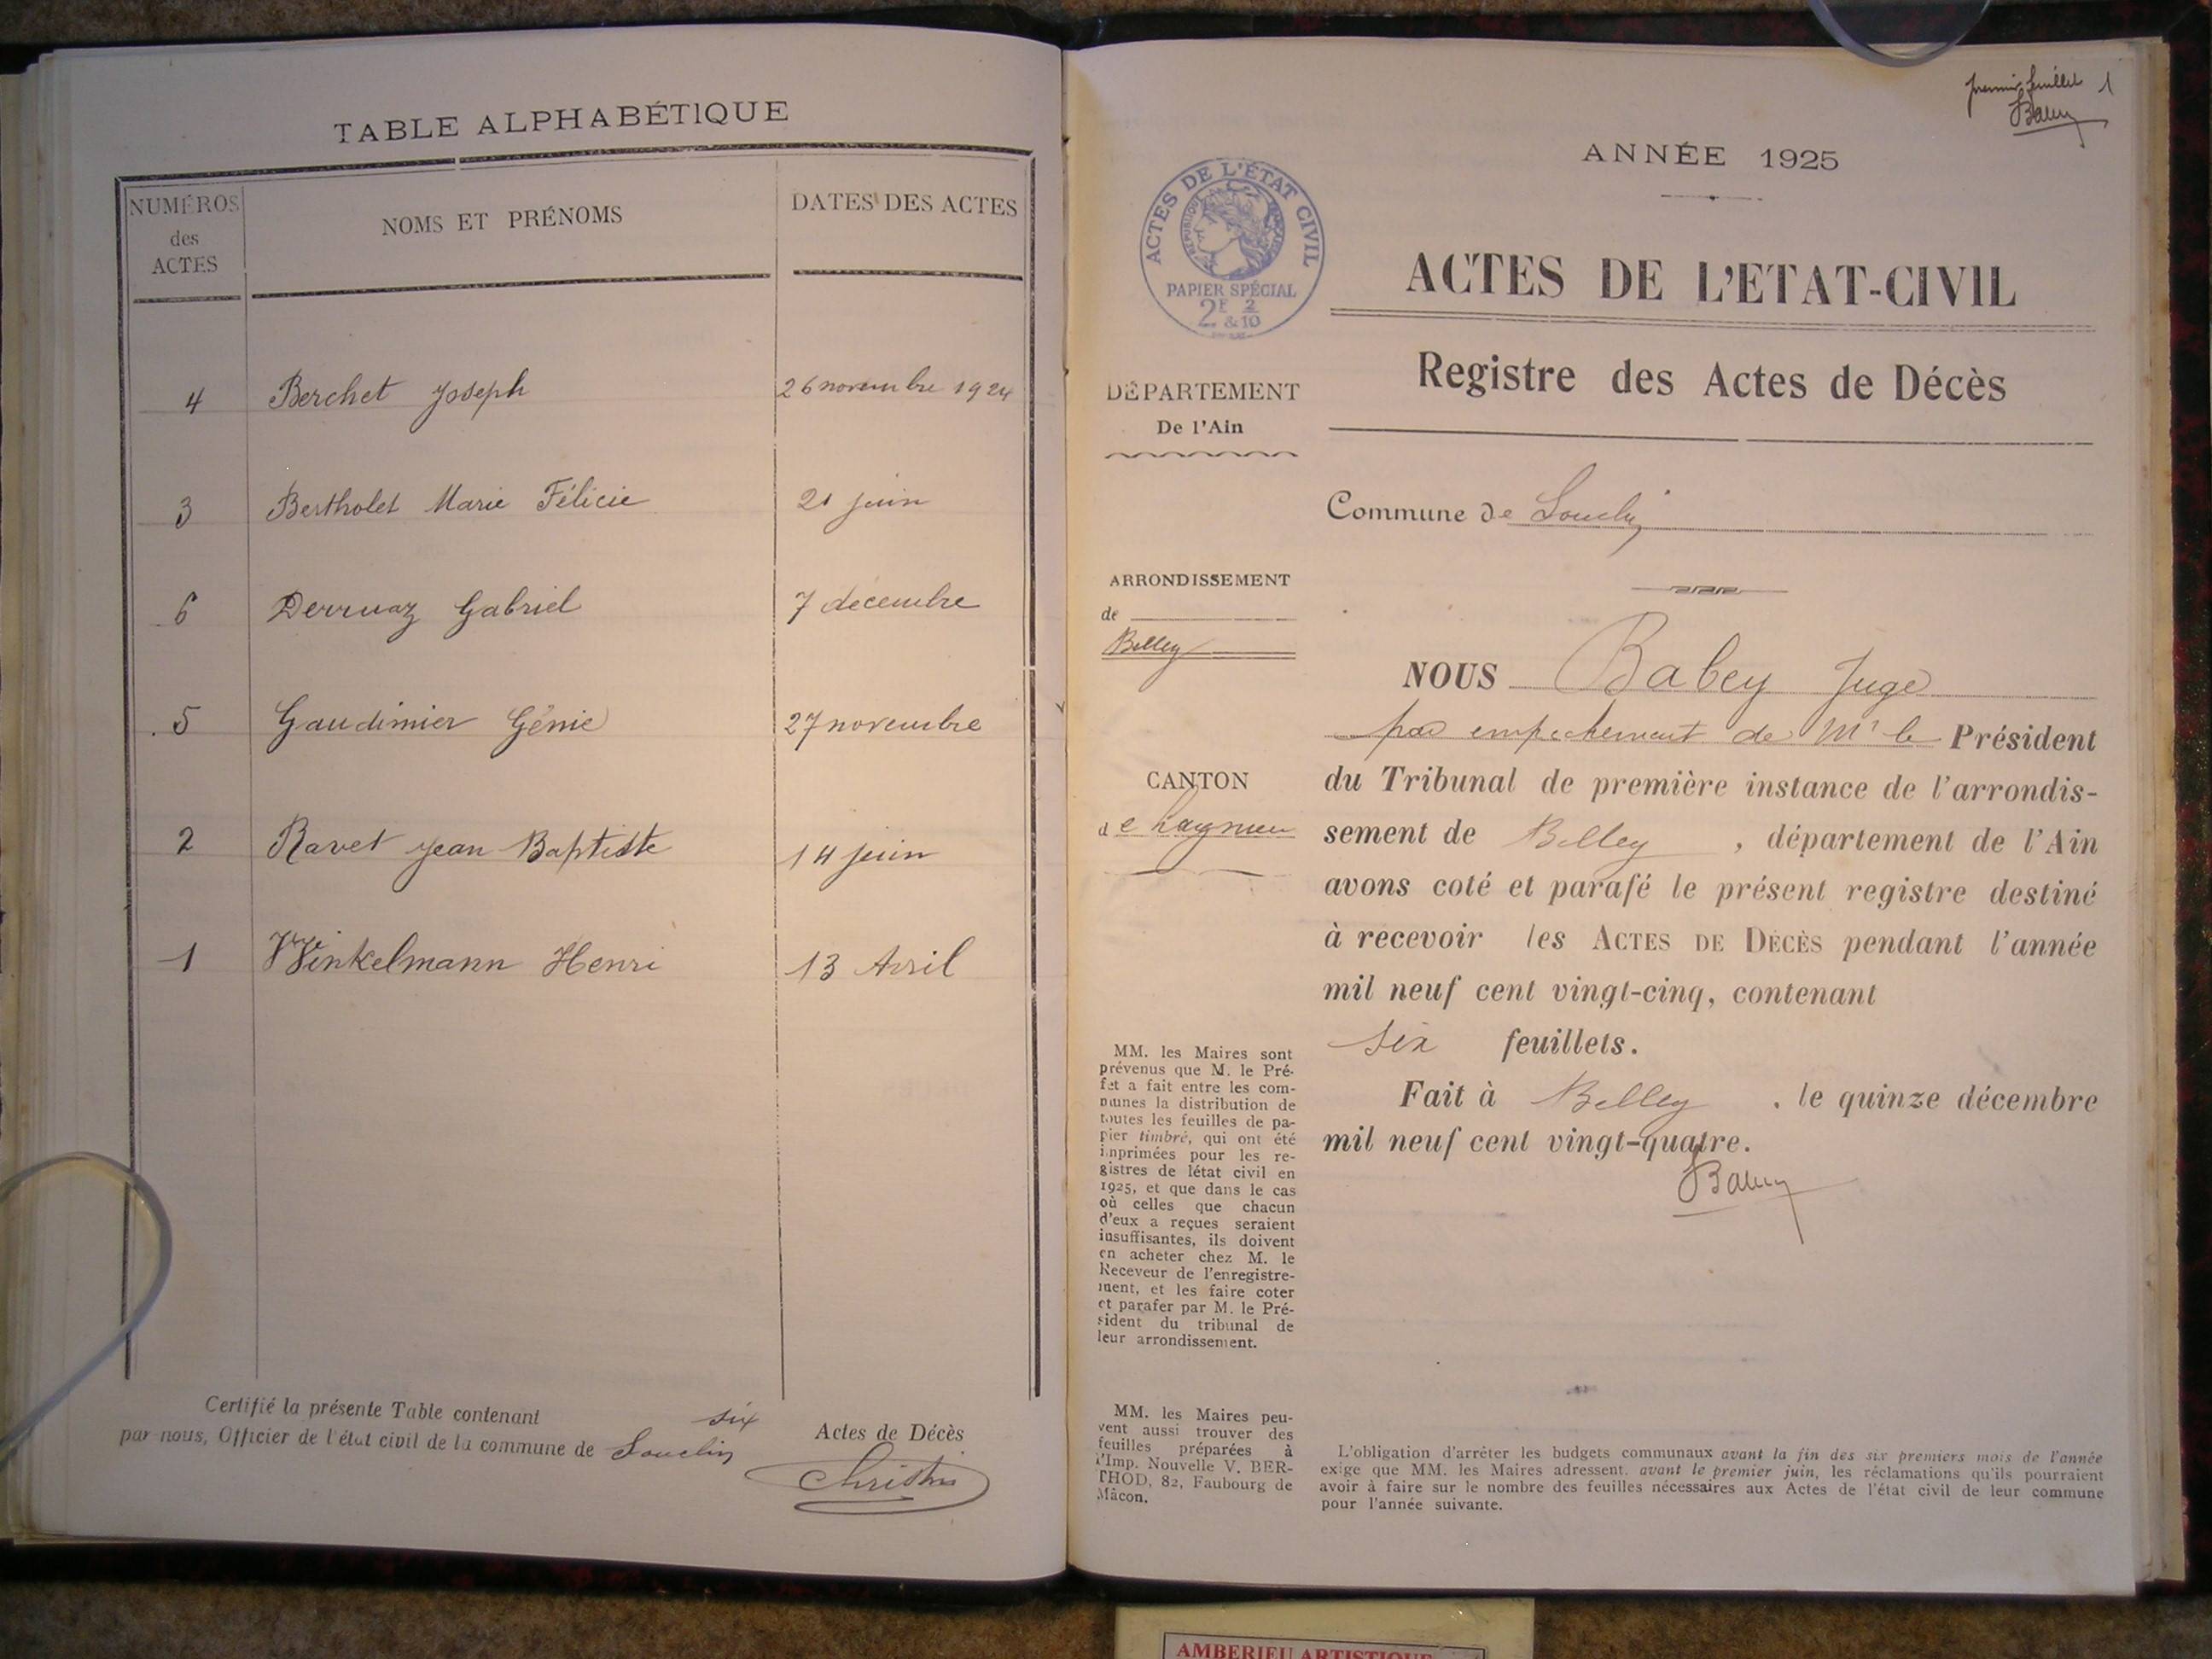 TABLE ALPHABÉTIQUE
NUMÉROS des ACTES
NOMS ET PRÉNOMS
DATES DES ACTES
4 Berchet Joseph 26 novembre 1924
3 Bertholet Marie Félicie 21 juin
6 Derruaz Gabriel 7 décembre
5 Gaudimier Génie 27 novembre
2 Ravet Jean Baptiste 14 juin
1 Winkelmann Henri 13 Avril
Certifié la présente Table contenant six Actes de Décès
par nous, Officier de l'état civil de la commune de Souclin
Christin
premier feuillet 1
Babey
ANNÉE 1925
ACTES DE L'ÉTAT CIVIL
RÉPUBLIQUE FRANÇAISE
PAPIER SPÉCIAL
2F 2
&10
ACTES DE L'ETAT-CIVIL
Registre des Actes de Décès
DÉPARTEMENT
De l'Ain
Commune de Souclin
ARRONDISSEMENT
de
Belley
CANTON
de Lagnieu
NOUS Babey Juge
par empechement de Mr le Président
du Tribunal de première instance de l'arrondis-
sement de Belley, département de l'Ain
avons coté et parafé le présent registre destiné
à recevoir les ACTES DE DÉCÈS pendant l'année
mil neuf cent vingt-cinq, contenant
six feuillets.
Fait à Belley, le quinze décembre
mil neuf cent vingt-quatre.
Babey
MM. les Maires sont
prévenus que M. le Pré-
fet a fait entre les com-
munes la distribution de
toutes les feuilles de pa-
pier timbré, qui ont été
imprimées pour les re-
gistres de létat civil en
1925, et que dans le cas
où celles que chacun
d'eux a reçues seraient
insuffisantes, ils doivent
en acheter chez M. le
Receveur de l'enregistre-
ment, et les faire coter
et parafer par M. le Pré-
sident du tribunal de
leur arrondissement.
MM. les Maires peu-
vent aussi trouver des
feuilles préparées à
l'Imp. Nouvelle V. BER-
THOD, 82, Faubourg de
Mâcon.
L'obligation d'arrêter les budgets communaux avant la fin des six premiers mois de l'année
exige que MM. les Maires adressent, avant le premier juin, les réclamations qu'ils pourraient
avoir à faire sur le nombre des feuilles nécessaires aux Actes de l'état civil de leur commune
pour l'année suivante.
AMBERIEU ARTISTIQUE